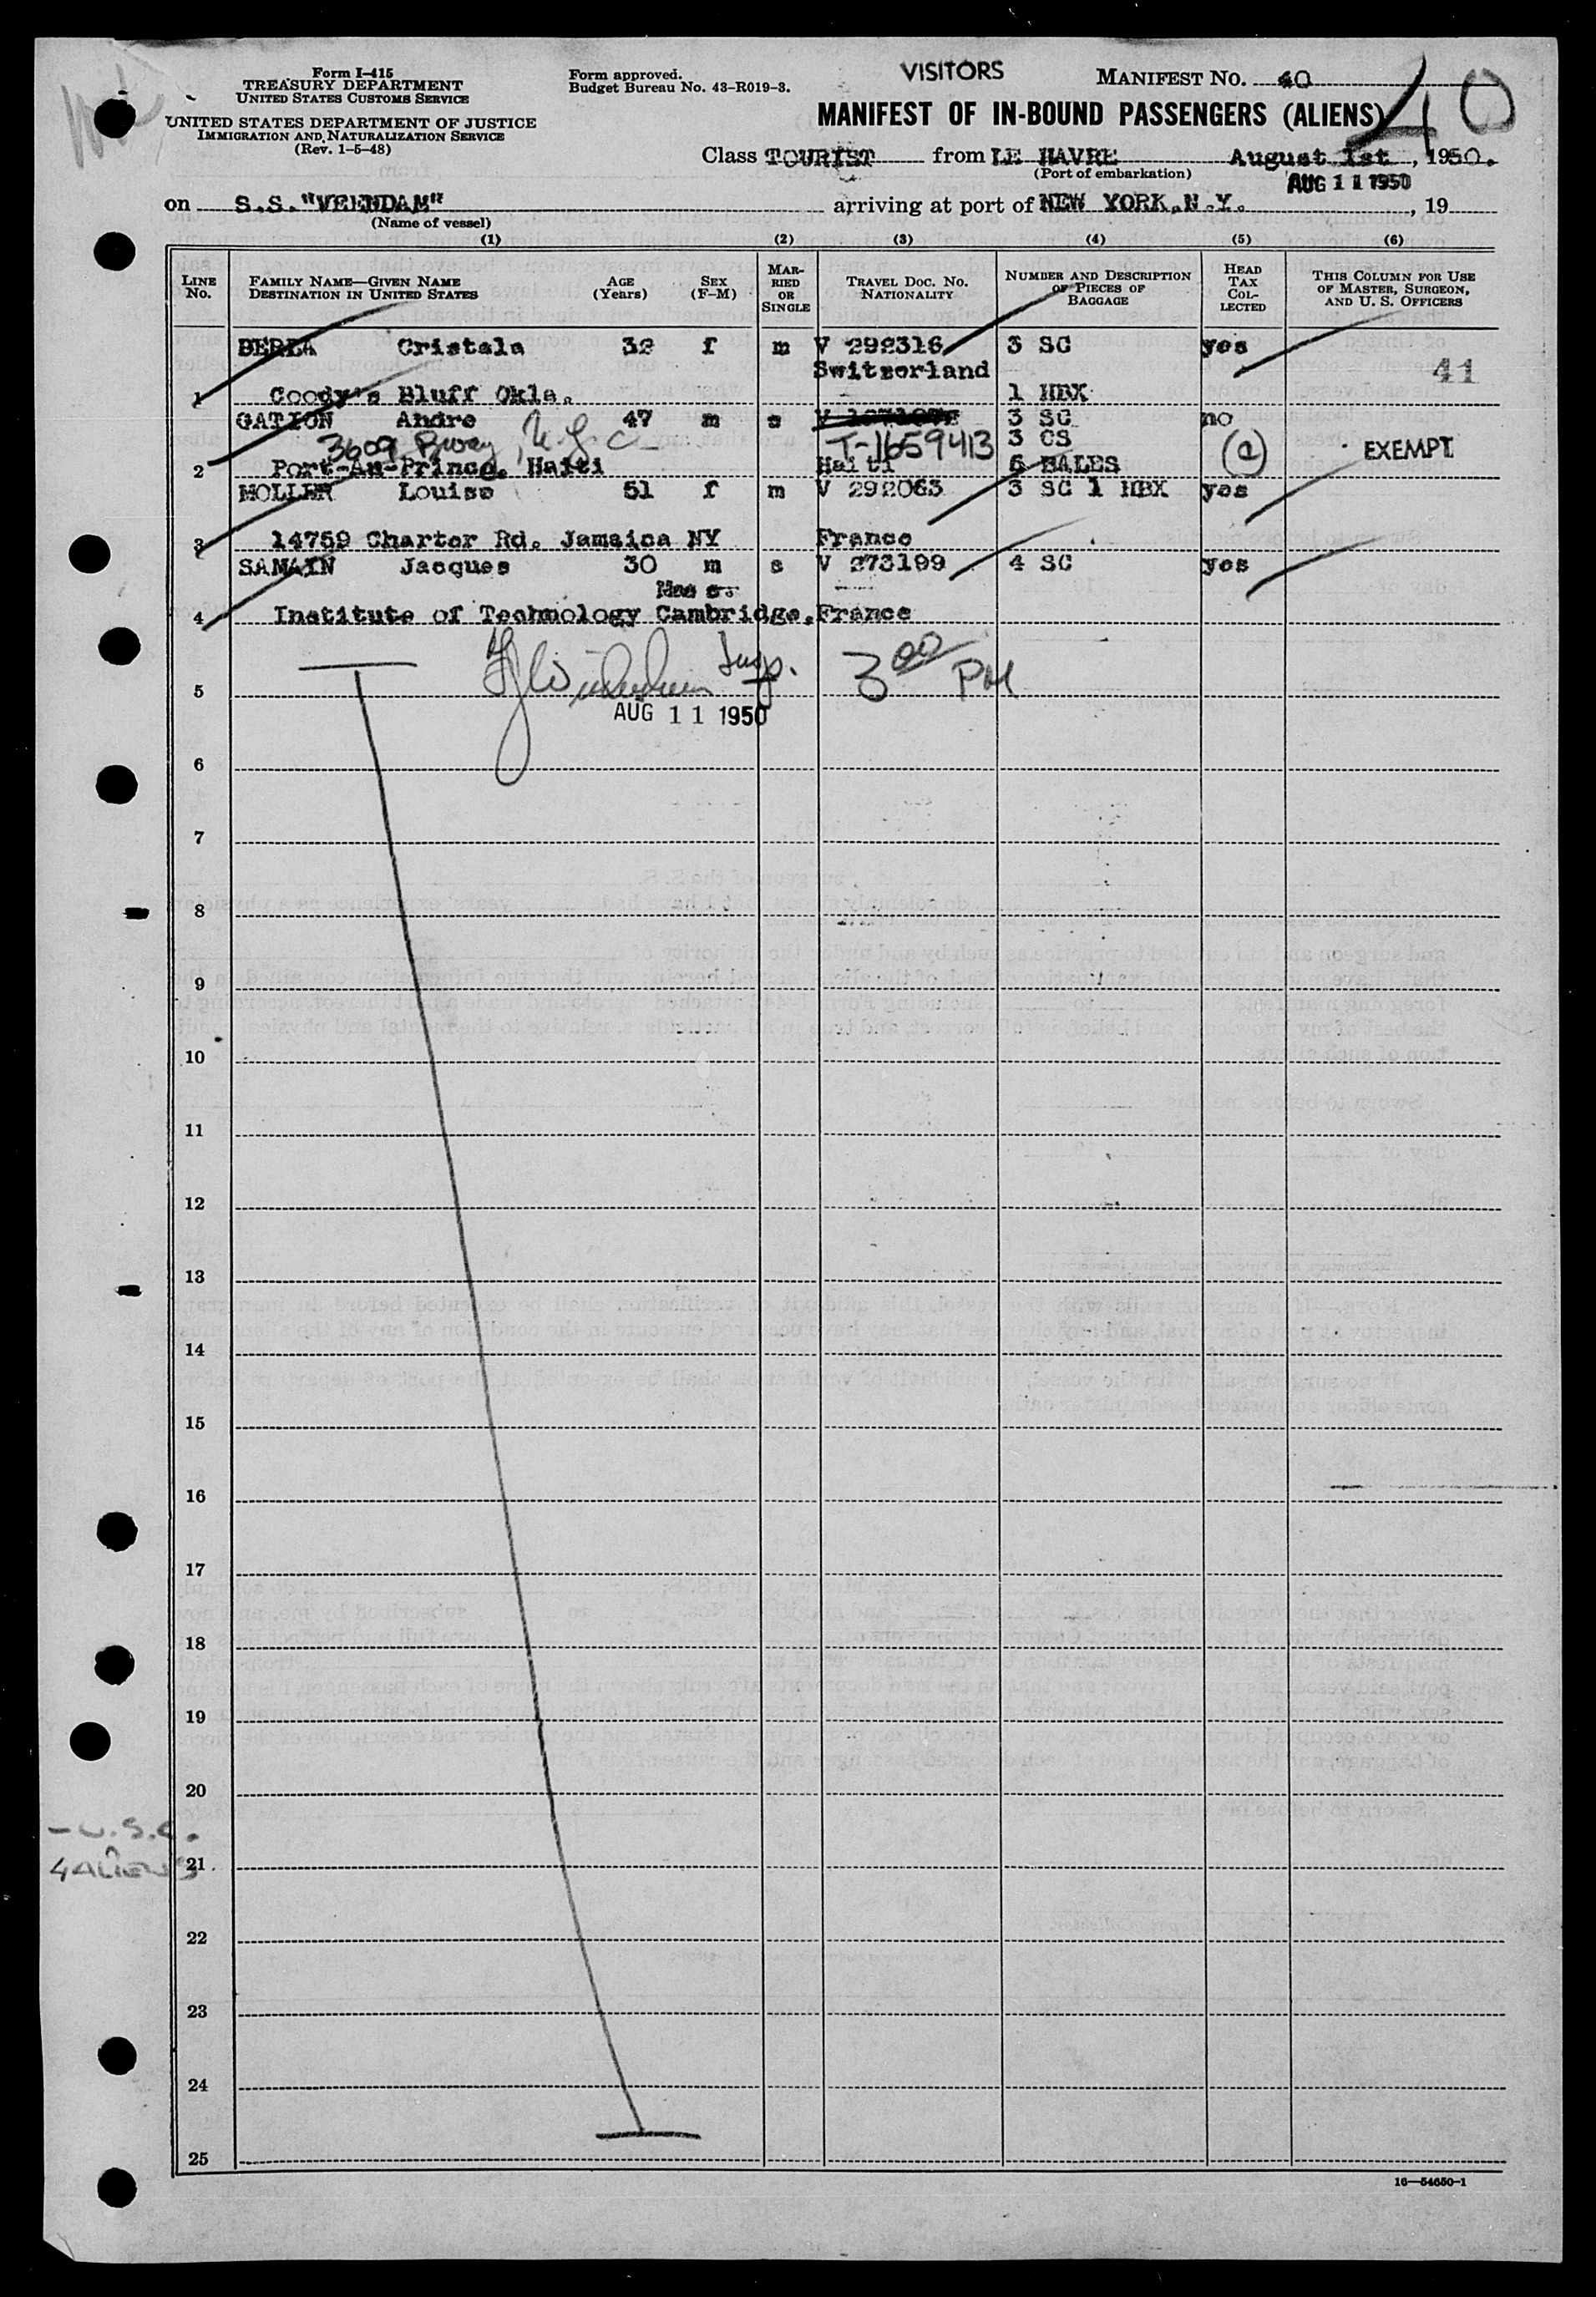 Form I-415
TREASURY DEPARTMENT
UNITED STATES CUSTOMS SERVICE
UNITED STATES DEPARTMENT OF JUSTICE
IMMIGRATION AND NATURALIZATION SERVICE
(Rev. 1-5-48)
Form approved.
Budget Bureau No. 43-R019-3.
VISITORS
MANIFEST No. 40
40
MANIFEST OF IN-BOUND PASSENGERS (ALIENS)
Class TOURIST from LE HAVRE August 1st, 1950.
(Port of embarkation)
AUG 11 1950
on S.S."VEENDAM" arriving at port of NEW YORK.N.Y. , 19
(Name of vessel)
(1) (2) (3) (4) (5) (6)
LINE No. FAMILY NAME—GIVEN NAME DESTINATION IN UNITED STATES AGE (Years) SEX (F-M) MARRIED OR SINGLE TRAVEL DOC. NO. NATIONALITY NUMBER AND DESCRIPTION OF PIECES OF BAGGAGE HEAD TAX COLLECTED THIS COLUMN FOR USE OF MASTER, SURGEON, AND U. S. OFFICERS
Cristala 32 f m V 292316 3 SC yes
Switzerland
41
1 Coody's Bluff Okla. 1 HBX
GATION Andre 47 m s 3 SC no
3609 Bway, N.Y.C. T-1659413 3 CS (a) EXEMPT
2 Port-Au-Prince. Haiti Haiti 5 BALES
MOLLER Louise 51 f m V 292063 3 SC 1 HBX yes
3 14759 Charter Rd. Jamaica NY France
SAMAIN Jacques 30 m s V 273199 4 SC yes
Mass.
4 Institute of Technology Cambridge. France
Insp. 3 00 PM
5
AUG 11 1950
6
7
8
9
10
11
12
13
14
15
16
17
18
19
20
- U.S.C.
4 ALIENS
21
22
23
24
25
16—54650-1